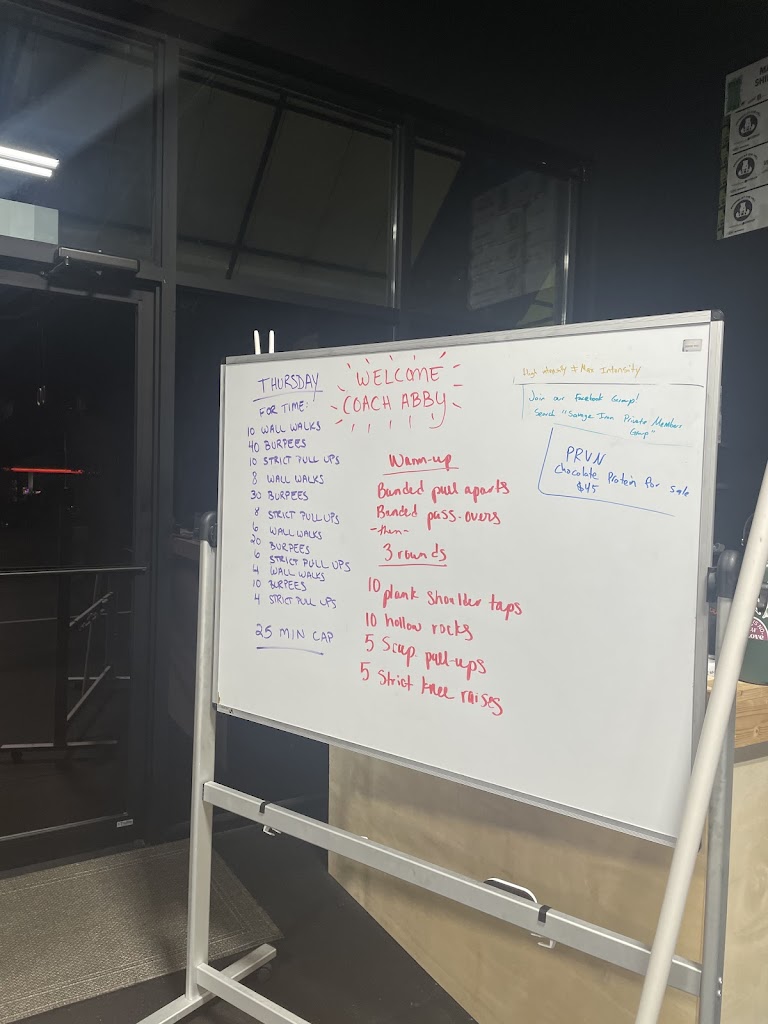 THURSDAY
FOR TIME:
10 WALL WALKS
40 BURPEES
10 STRICT PULL UPS
8 WALL WALKS
30 BURPEES
8 STRICT PULL UPS
6 WALL WALKS
20 BURPEES
6 STRICT PULL UPS
4 WALL WALKS
10 BURPEES
4 STRICT PULL UPS
25 MIN CAP
WELCOME
COACH ABBY
Warm-up
Banded pull aparts
Banded pass-overs
-then-
3 rounds
10 plank shoulder taps
10 hollow rocks
5 Scap. pull-ups
5 Strict knee raises
High Intensity Max Intensity
Join our Facebook Group!
Search "Savage Iron Private Member
Group"
PRVN
Chocolate Protein for sale
$45